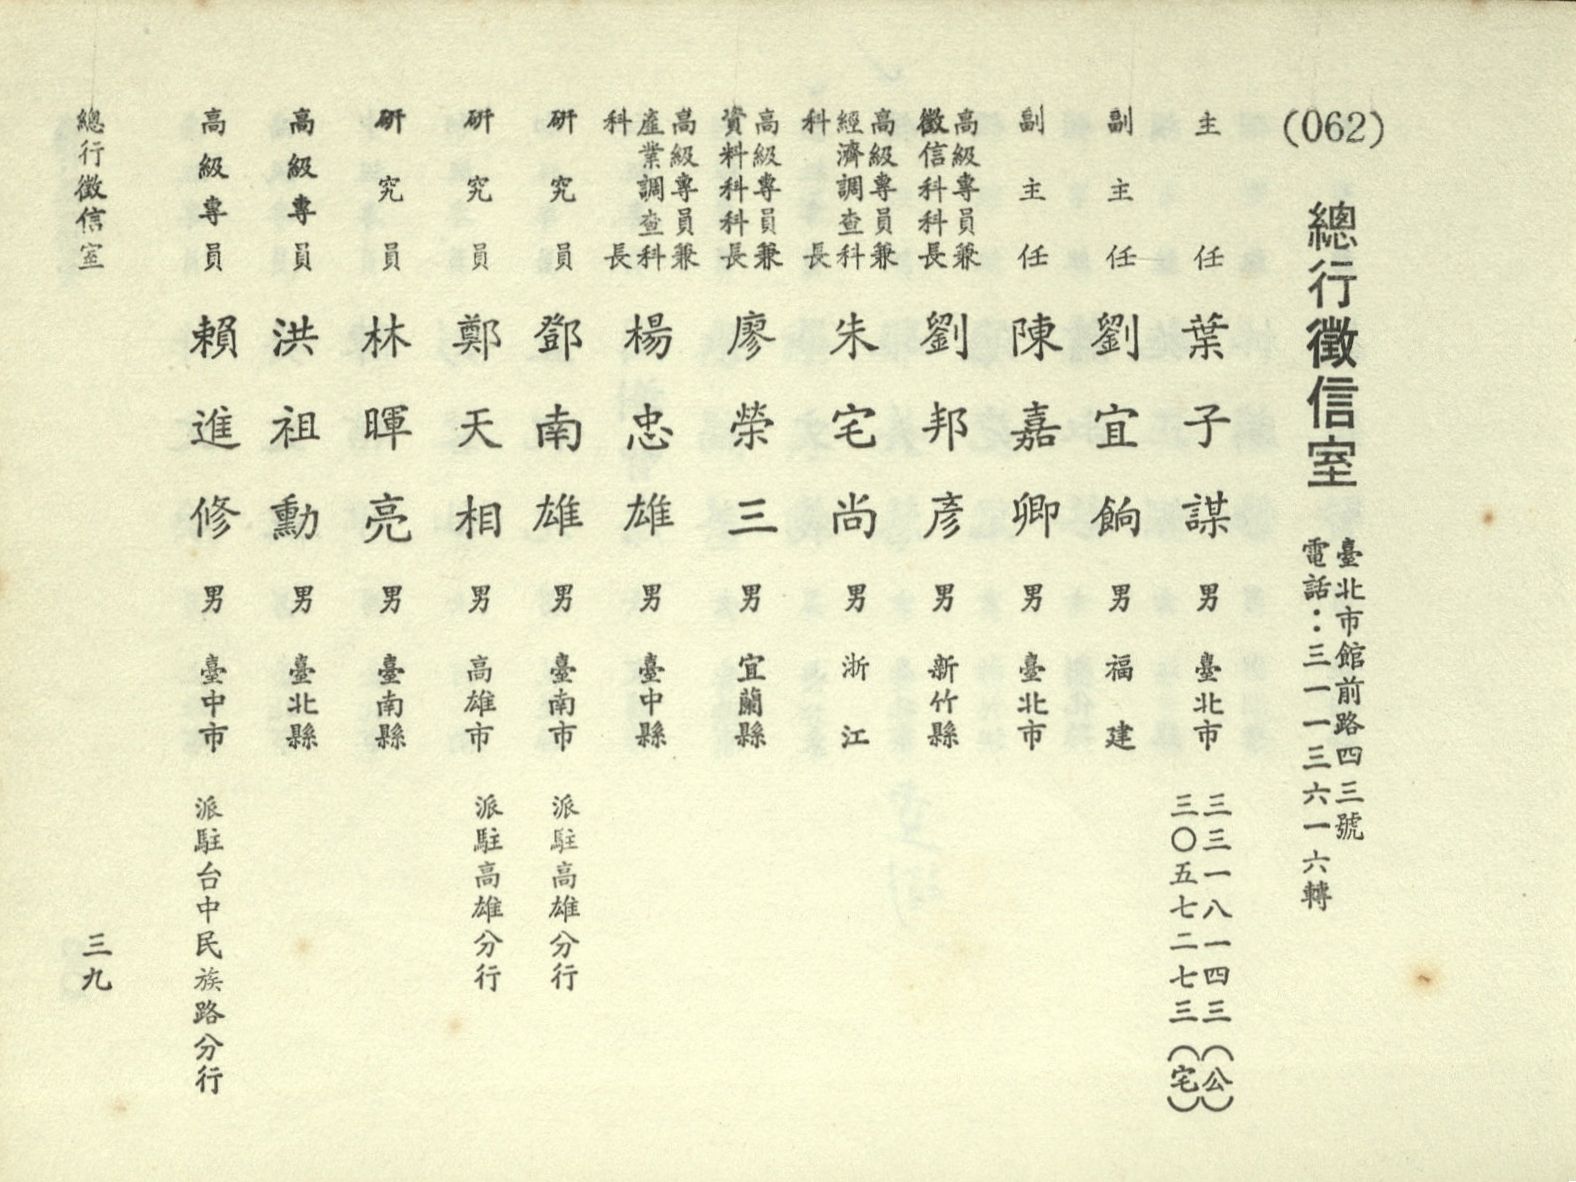 (062)
總行徵信室
臺北市館前路四三號
電話：三一一三六一六轉
主任 葉子謀 男 臺北市 三三一八一四三（公）
三〇五七二七三（宅）
副主任 劉宜餉 男 福建
副主任 陳嘉卿 男 臺北市
高級專員兼
徵信科科長 劉邦彥 男 新竹縣
高級專員兼
經濟調查科
科長 朱宅尚 男 浙江
高級專員兼
資料科科長 廖榮三 男 宜蘭縣
高級專員兼
產業調查科
科長 楊忠雄 男 臺中縣
研究員 鄧南雄 男 臺南市 派駐高雄分行
研究員 鄭天相 男 高雄市 派駐高雄分行
研究員 林暉亮 男 臺南縣
高級專員 洪祖勳 男 臺北縣
高級專員 賴進修 男 臺中市 派駐台中民族路分行
總行徵信室
三九